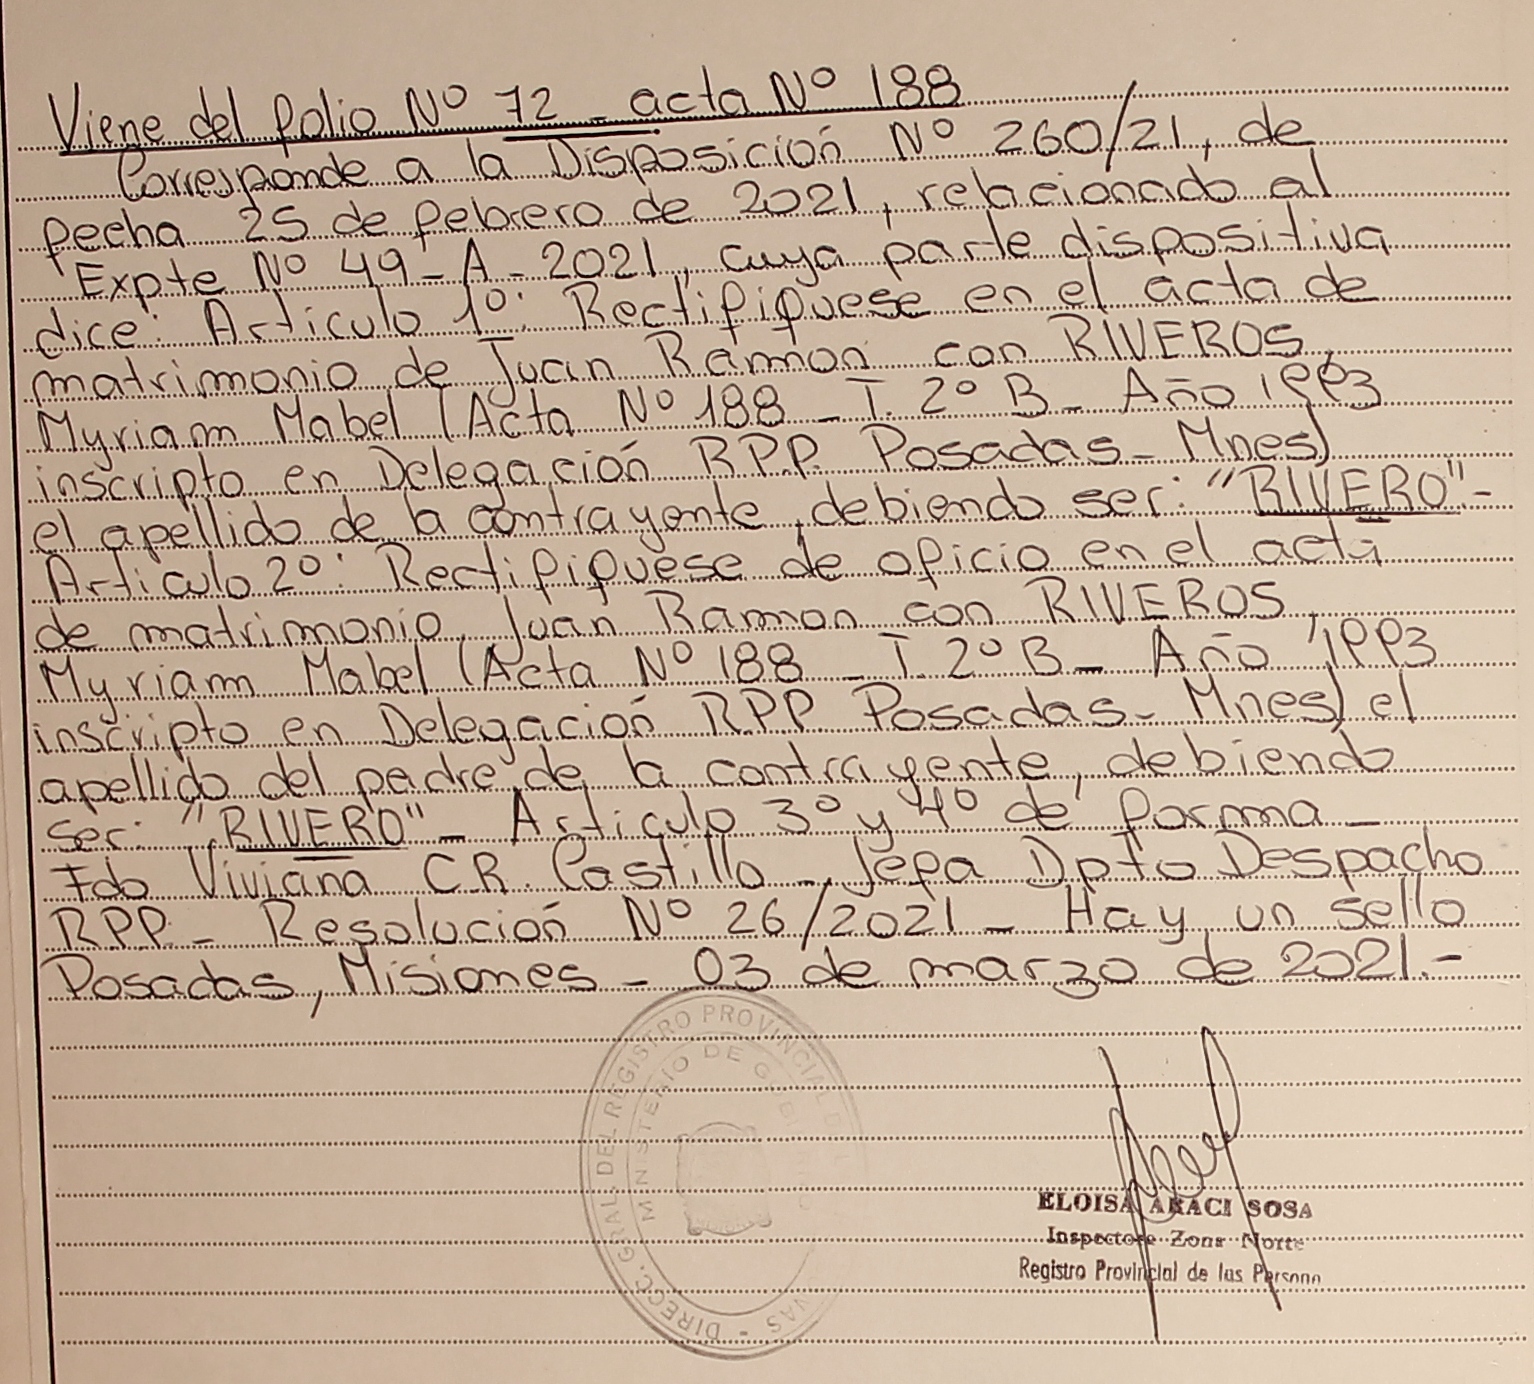 Viene del folio Nº 72 - acta Nº 188
Corresponde a la Disposición Nº 260/21, de
fecha 25 de febrero de 2021, relacionado al
Expte Nº 49-A-2021, cuya parte dispositiva
dice: Articulo 1º: Rectifíquese en el acta de
matrimonio de Juan Ramon con RIVEROS,
Myriam Mabel (Acta Nº 188 - T. 2º B - Año 1993
inscripto en Delegación RPP. Posadas - Mnes)
el apellido de la contrayente, debiendo ser: "RIVERO"-
Articulo 2º: Rectifíquese de oficio en el acta
de matrimonio, Juan Ramon con RIVEROS,
Myriam Mabel (Acta Nº 188 - T. 2º B - Año 1993
inscripto en Delegación RPP Posadas - Mnes) el
apellido del padre de la contrayente, debiendo
ser: "RIVERO" - Articulo 3º y 4º de forma -
Fdo Viviana C.R. Castillo - Jefa Dpto Despacho
RPP - Resolución Nº 26/2021 - Hay un sello
Posadas, Misiones - 03 de marzo de 2021.-
DIRECC. GRAL. DEL REGISTRO PROVINCIAL DE
MINISTERIO DE GOBIERNO
ELOISA ARACI SOSA
Inspectora Zona Norte
Registro Provincial de las Persona